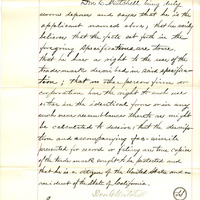 Don C. Mitchell being duly
sworn deposes and says that he is the
applicant named above; that he verily
believes that the facts set forth in the
foregoing specifications are true,
that he has a right to the use of the
trademark described in said specifica-
tion; that no other person firm, or
corporation has the right to such use
either in the identical form or in any
such near resemblance thereto as might
be calculated to deceive; that the descrip-
tion and accompanying fac-simile
presented for record or filing are true copies
of the trademark sought to be protected and
that he is a citizen of the United States and a
resident of the State of California.
Don C. Mitchell